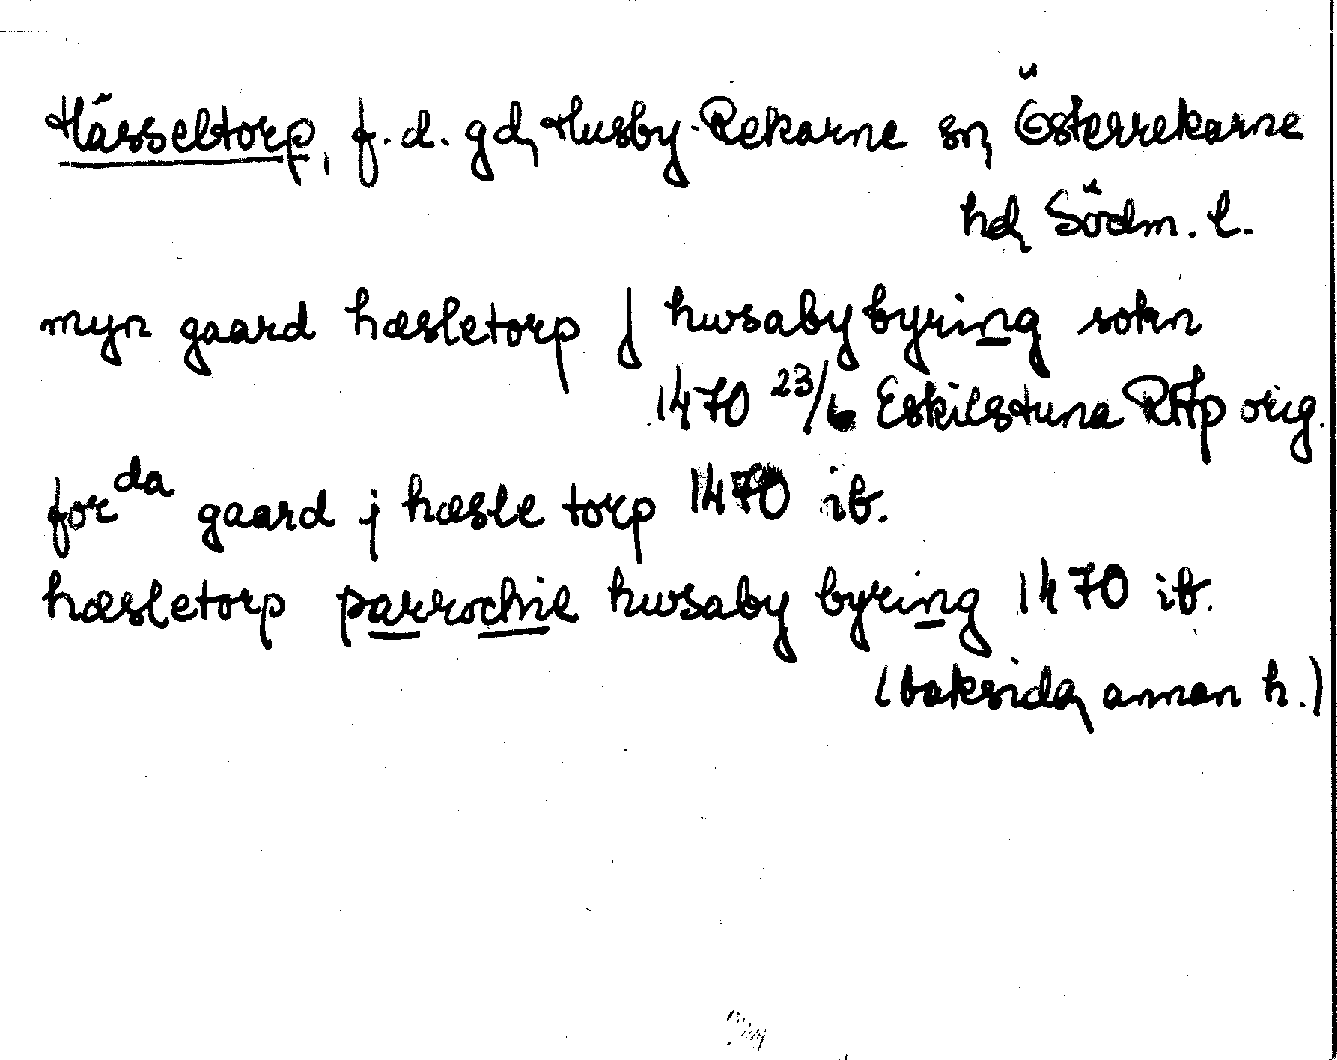 Hässeltorp, f.d. gd, Husby-Rekarne sn, Österrekarne
hd, Södm. l.
myn gaard hæsletorp J hwsaby byring sokn
1470 23/6 Eskilstuna RAp orig.
forda gaard j hæsle torp 1470 ib.
hæsletorp parrochie hwsaby byring 1470 ib.
(baksida, annan h.)